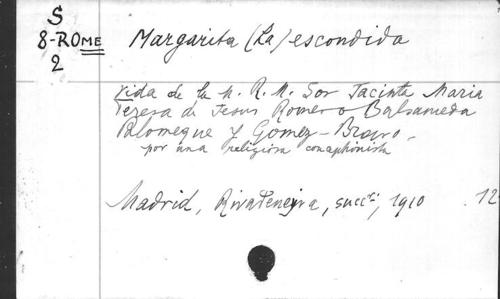 S
8-ROME
2
Margarita (La) escondida
Vida de la M. R. M. Sor Jacinta Maria
Teresa de Jesus Romero Balsameda
Palomeque y Gomez-Bravo.
por una religiosa
Madrid, Rivadeneyra, 1910 12